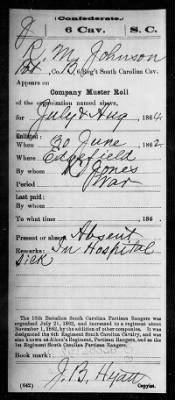 Confederate.
J 6 Cav. S. C.
R. M. Johnson
Pvt, Co. 6 Reg't South Carolina Cav.
Appears on
Company Muster Roll
of the organization named above,
for July & Aug, 1864.
Enlisted:
When 30 June, 1862
Where Edgefield
By whom Jones
Period War
Last paid:
By whom
To what time , 186 .
Present or absent Absent
Remarks: In Hospital
Sick
The 16th Battalion South Carolina Partisan Rangers was
organized July 21, 1862, and increased to a regiment about
November 1, 1862, by the addition of other companies. It was
designated the 6th Regiment South Carolina Cavalry, and was
also known as Aiken's Regiment, Partisan Rangers, and as the
1st Regiment South Carolina Partisan Rangers.
Book mark:
J. B. Hyatt
(642) Copyist.